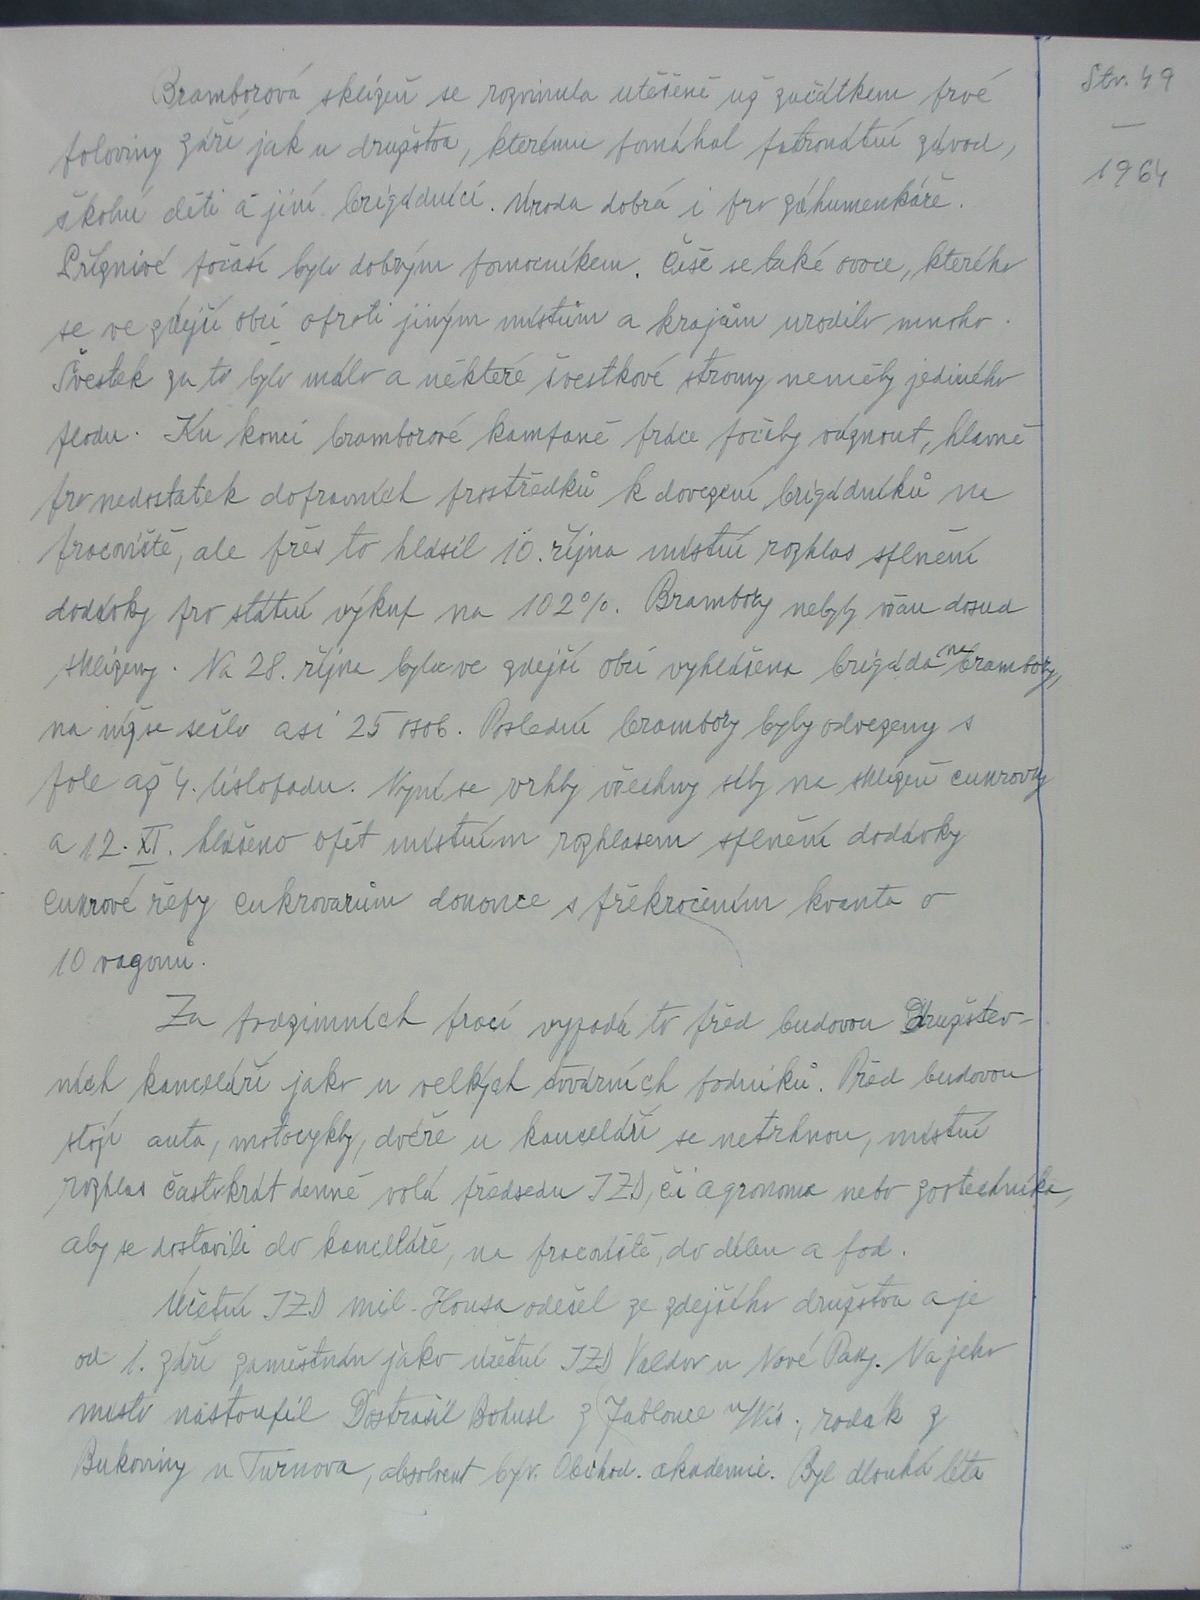 Str. 49
—
1964
Bramborová sklizeň se rozvinula utěšeně už začátkem prvé
poloviny září jak u družstva, kterému pomáhal patronátní závod,
školní děti a jiní brigádníci. Úroda dobrá i pro záhumenkáře.
Příznivé počasí bylo dobrým pomocníkem. Češe se také ovoce, kterého
se ve zdejší obci oproti jiným místům a krajům urodilo mnoho.
Švestek za to bylo málo a některé švestkové stromy neměly jediného
plodu. Ku konci bramborové kampaně práce počaly váznout, hlavně
pro nedostatek dopravních prostředků k dovezení brigádníků na
pracoviště, ale přes to hlásil 10. října místní rozhlas splnění
dodávky pro státní výkup na 102%. Brambory nebyly však dosud
sklizeny. Na 28. října byla ve zdejší obci vyhlášena brigáda na brambory,
na níž se sešlo asi 25 osob. Poslední brambory byly odvezeny s
pole až 4. listopadu. Nyní se vrhly všechny síly na sklizeň cukrovky
a 12. XI. hlášeno opět místním rozhlasem splnění dodávky
cukrové řepy cukrovarům dokonce s překročením kvanta o
10 vagonů.
Za podzimních prací vypadá to před budovou Družstev-
ních kanceláří jako u velkých továrních podniků. Před budovou
stojí auta, motocykly, dvéře u kanceláří se netrhnou, místní
rozhlas častokrát denně volá předsedu JZD, či agronoma nebo zootechnika,
aby se dostavili do kanceláře, na pracoviště, do dílen a pod.
Účetní JZD Mil. Housa odešel ze zdejšího družstva a je
od 1. září zaměstnán jako účetní JZD Valdov u Nové Paky. Na jeho
místo nastoupil Dostrašil Bohusl z Jablonce n/Nis., rodák z
Bukoviny u Turnova, absolvent býv. Obchod. akademie. Byl dlouhá léta